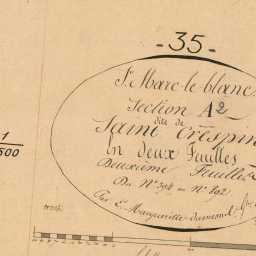 - 35 -
St Marc-le-blanc
Section A2
dite de
Saint Crespin
En deux Feuilles
Deuxième Feuille
Du N° 398 au N° 802
Par
1
500